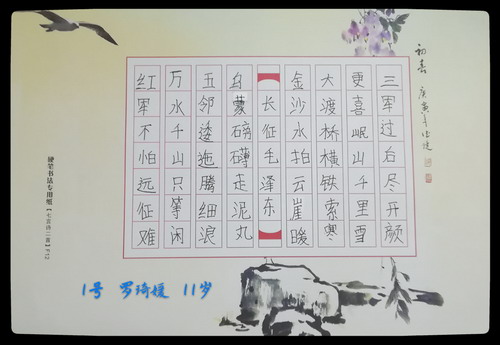 红军不怕远征难
万水千山只等闲
五邻逶迤腾细浪
乌蒙磅礴走泥丸
长征毛泽东
金沙水拍云崖暖
大渡桥横铁索寒
更喜岷山千里雪
三军过后尽开颜
硬笔书法专用纸【七言诗二首】Y-12
1号 罗琦媛 11岁